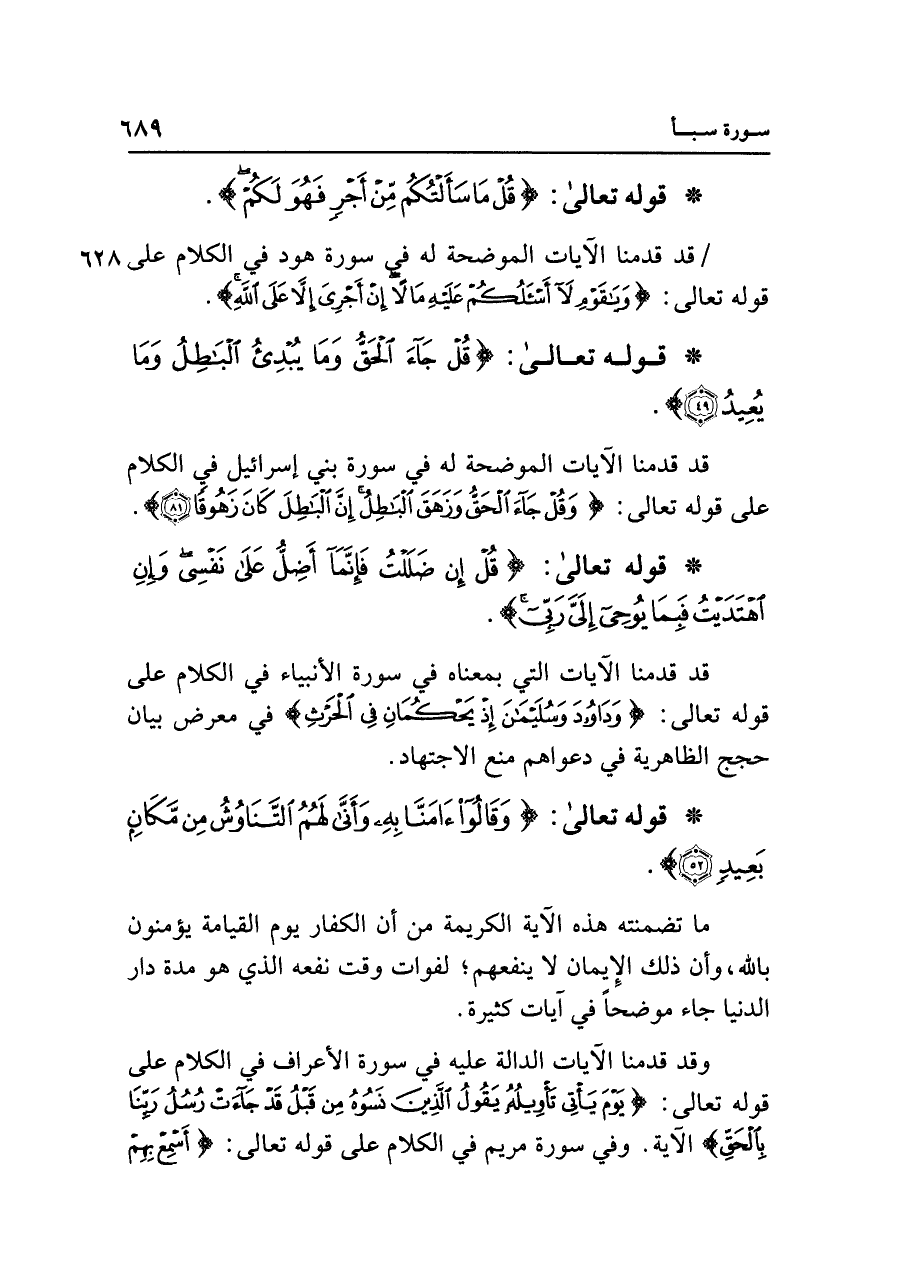 سورة سبأ ٦٨٩
* قوله تعالىٰ: ﴿قُلْ مَا سَأَلْتُكُم مِّنْ أَجْرٍ فَهُوَ لَكُمْ ۖ﴾.
/ قد قدمنا الآيات الموضحة له في سورة هود في الكلام على ٦٢٨
قوله تعالى: ﴿وَيَٰقَوْمِ لَآ أَسْـَٔلُكُمْ عَلَيْهِ مَالًا ۖ إِنْ أَجْرِىَ إِلَّا عَلَى ٱللَّهِ ۚ﴾.
* قوله تعالىٰ: ﴿قُلْ جَآءَ ٱلْحَقُّ وَمَا يُبْدِئُ ٱلْبَٰطِلُ وَمَا
يُعِيدُ ﴿٤٩﴾﴾.
قد قدمنا الآيات الموضحة له في سورة بني إسرائيل في الكلام
على قوله تعالى: ﴿وَقُلْ جَآءَ ٱلْحَقُّ وَزَهَقَ ٱلْبَٰطِلُ ۚ إِنَّ ٱلْبَٰطِلَ كَانَ زَهُوقًا ﴿٨١﴾﴾.
* قوله تعالىٰ: ﴿قُلْ إِن ضَلَلْتُ فَإِنَّمَآ أَضِلُّ عَلَىٰ نَفْسِى ۖ وَإِنِ
ٱهْتَدَيْتُ فَبِمَا يُوحِىٓ إِلَىَّ رَبِّىٓ ۚ﴾.
قد قدمنا الآيات التي بمعناه في سورة الأنبياء في الكلام على
قوله تعالى: ﴿وَدَاوُۥدَ وَسُلَيْمَٰنَ إِذْ يَحْكُمَانِ فِى ٱلْحَرْثِ﴾ في معرض بيان
حجج الظاهرية في دعواهم منع الاجتهاد.
* قوله تعالىٰ: ﴿وَقَالُوٓا۟ ءَامَنَّا بِهِۦ وَأَنَّىٰ لَهُمُ ٱلتَّنَاوُشُ مِن مَّكَانٍۭ
بَعِيدٍ ﴿٥٢﴾﴾.
ما تضمنته هذه الآية الكريمة من أن الكفار يوم القيامة يؤمنون
بالله، وأن ذلك الإيمان لا ينفعهم؛ لفوات وقت نفعه الذي هو مدة دار
الدنيا جاء موضحاً في آيات كثيرة.
وقد قدمنا الآيات الدالة عليه في سورة الأعراف في الكلام على
قوله تعالى: ﴿يَوْمَ يَأْتِى تَأْوِيلُهُۥ يَقُولُ ٱلَّذِينَ نَسُوهُ مِن قَبْلُ قَدْ جَآءَتْ رُسُلُ رَبِّنَا
بِٱلْحَقِّ﴾ الآية. وفي سورة مريم في الكلام على قوله تعالى: ﴿أَسْمِعْ بِهِمْ